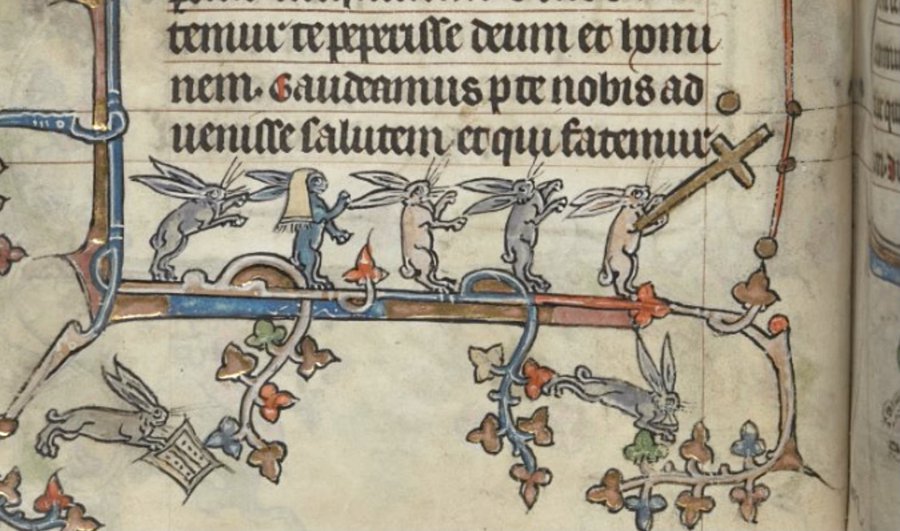 temur te peperisse deum et homi
nem. Gaudeamus p te nobis ad
uenisse salutem et qui fatemur